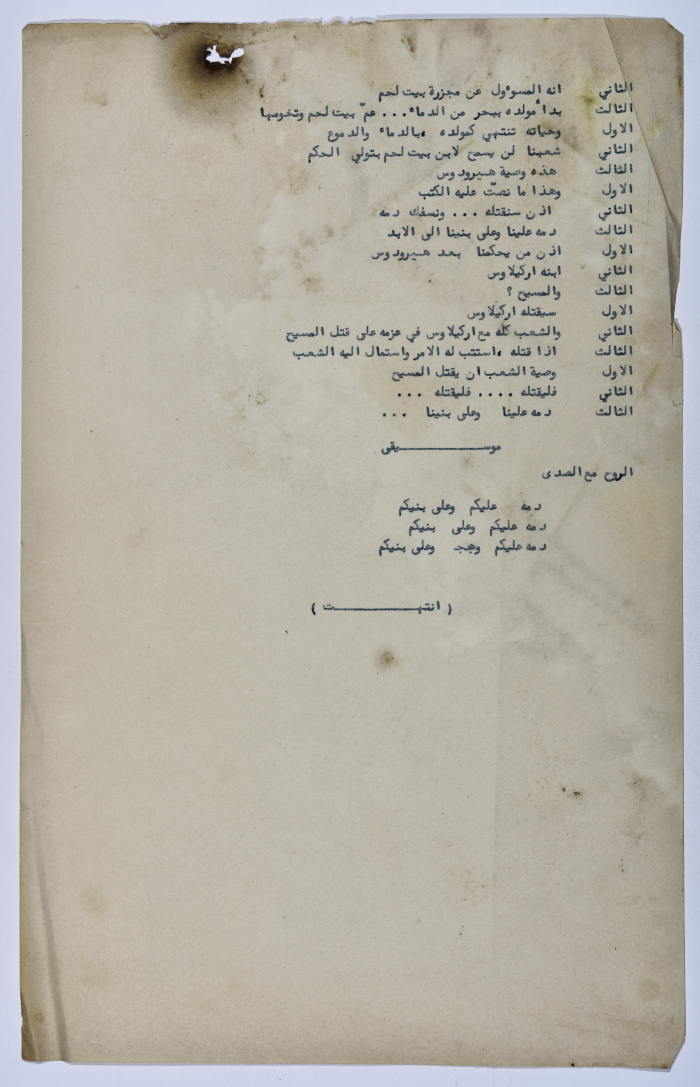 الثاني انه المسوٴول عن مجزرة بيت لحم
الثالث بدأ مولده ببحر من الدماء ... عمّ بيت لحم وتخومها
الاول وحياته تنتهي كمولده ،بالدماء والدموع
الثاني شعبنا لن يسمح لابن بيت لحم بتولي الحكم
الثالث هذه وصية هيرودوس
الاول وهذا ما نصتّ عليه الكتب
الثاني اذن سنقتله ... ونسفك دمه
الثالث دمه علينا وعلى بنينا الى الابد
الاول اذن من يحكمنا بعد هيرودوس
الثاني ابنه اركيلاوس
الثالث والمسيح ؟
الاول سيقتله اركيلاوس
الثاني والشعب كله مع اركيلاوس في عزمه على قتل المسيح
الثالث اذا قتله ،استتب له الامر واستمال اليه الشعب
الاول وصية الشعب ان يقتل المسيح
الثاني فليقتله .... فليقتله ...
الثالث دمه علينا وعلى بنينا ...
موســـــــــــيقى
الروح مع الصدى
دمه عليكم وعلى بنيكم
دمه عليكم وعلى بنيكم
دمه عليكم وعلى بنيكم
( انتهـــــــــــت )